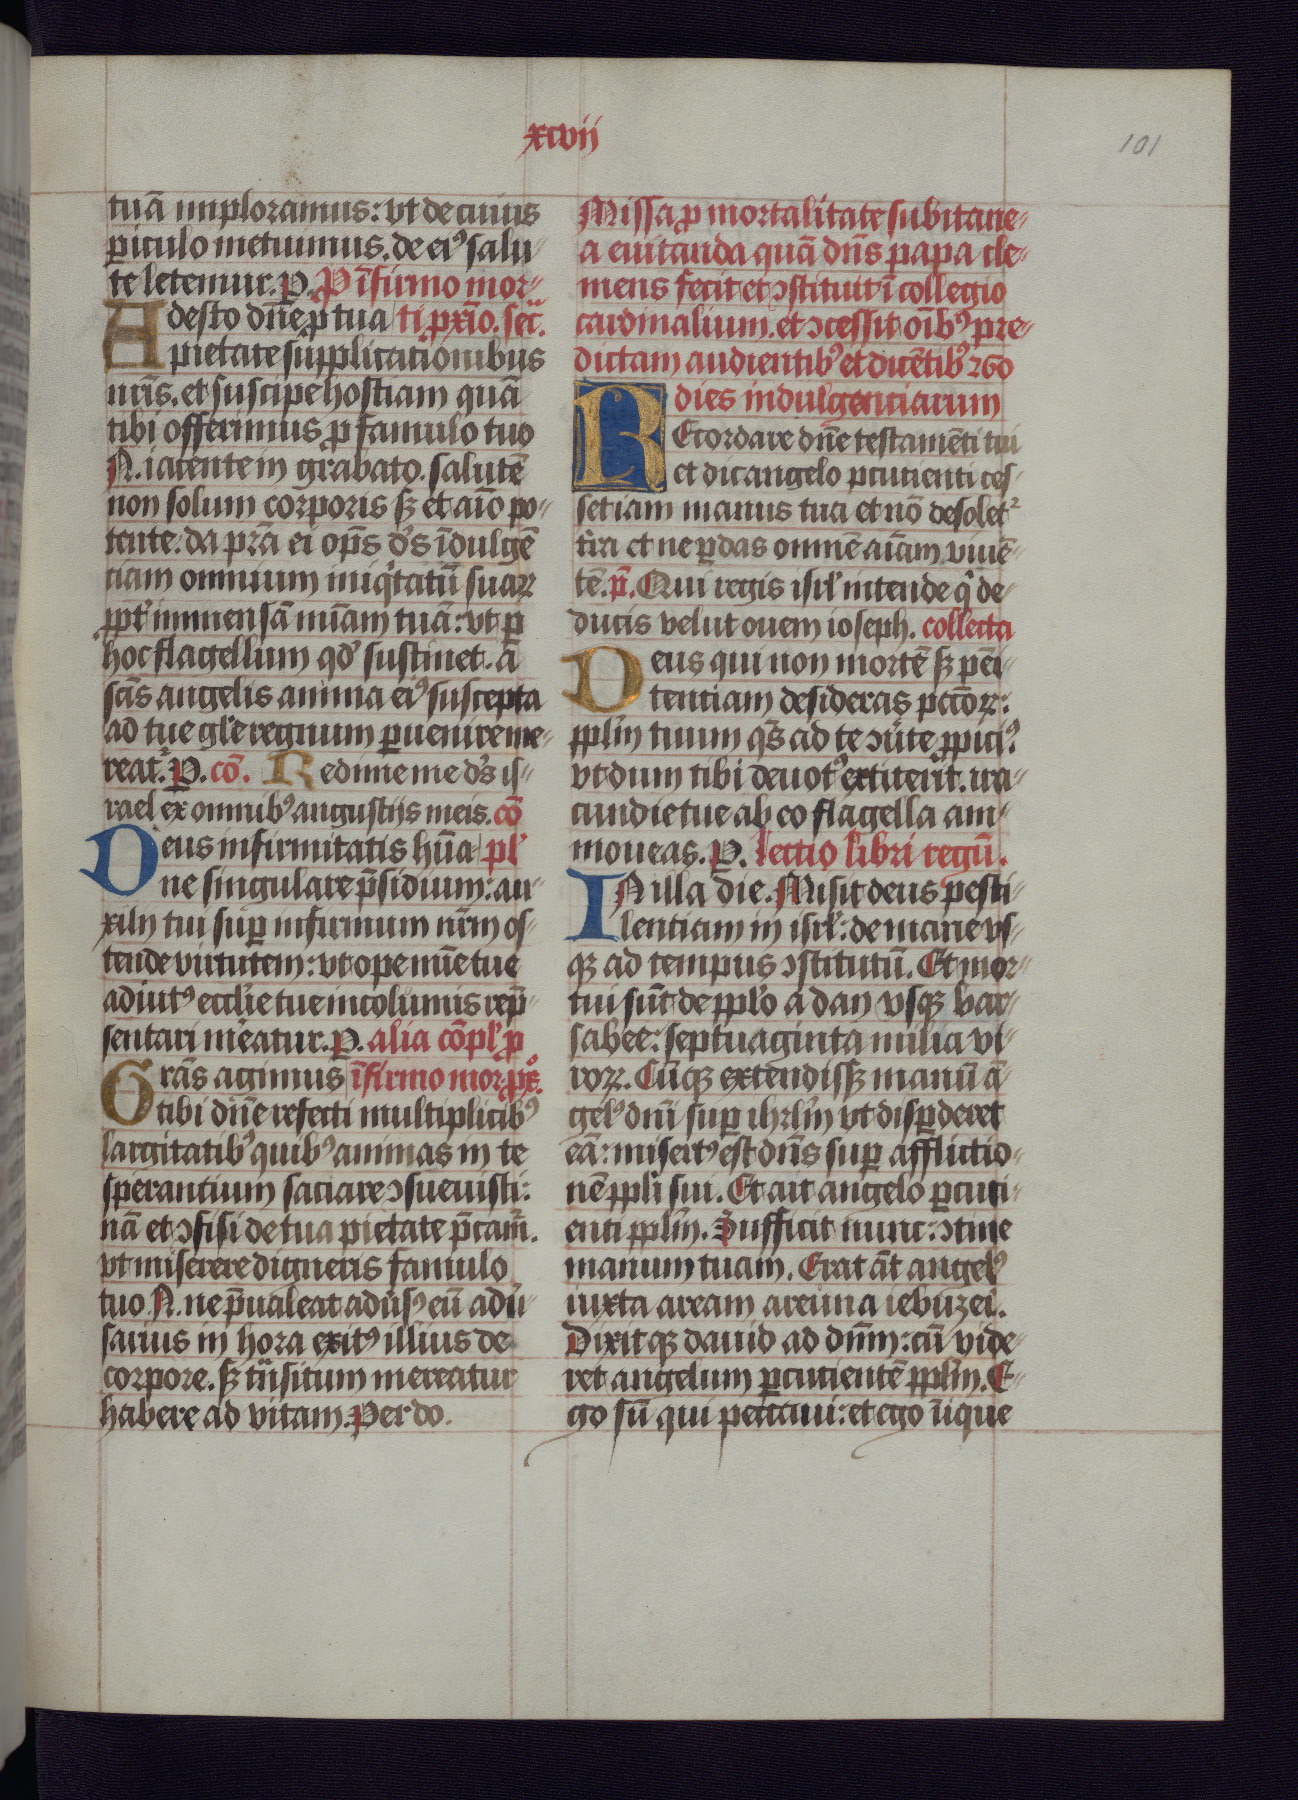 xcvii
101
tuā imploramus: vt de cuius
ꝑiculo metuimus. de eiꝰ salu-
te letemur. P. P̱ īfirmo mor-
Adesto dn̄e ꝓ tua ti ꝓxīo. sec̄.
pietate supplicationibus
nr̄is. et suscipe hostiam quā
tibi offerimus ꝓ famulo tuo
N. iacente in grabato. salutē
non solum corporis sꝫ et aīo po-
tente. da pr̄a ei op̄s dˀs īdulgē
ciam omnium iniqͥtatū suaꝝ
ꝓpt̄ immensā mīam tuā: vt ꝑ
hoc flagellum qd̄ sustinet. a
scīs angelis anima eiꝰ suscepta
ad tue gl̄e regnum ꝑuenire me-
reat᷑. P. cō. Redime me dˀs is-
rael ex omnibꝰ angustijs meis. cō
Deus infirmitatis hūa pl̄
ne singulare p̄sidium: au-
xilij tui suꝑ infirmum nr̄m os-
tende virtutem: vt ope mīe tue
adiutꝰ eccl̄ie tue incolumis rep̄-
sentari m̄eatur. P. alia cōpl̄ ꝓ
Grās agimus īfirmo mor. pͦx̄.
tibi dn̄e refecti multiplicibꝰ
largitatibꝰ quibꝰ animas in te
sperantium saciare ↄsueuisti:
nā et ↄfisi de tua pietate p̄camͬ.
vt miserere digneris famulo
tuo N. ne p̄ualeat aduˀsꝰ eū aduˀ-
sarius in hora exitꝰ illius de
corpore. sꝫ trͣsitum mereatur
habere ad vitam. Per do.
Missa ꝓ mortalitate subitane-
a euitanda quā dn̄s papa cle-
mens fecit et ↄstituit ī collegio
cardinalium. et ↄcessit oīb9 pre-
dictam audientibꝰ et dicētibꝰ 260
dies indulgenciarum
REcordare dn̄e testamēti tui
et dic angelo ꝑcutienti ces-
set iam manus tua et nō desolet᷑
tr̄ra et ne ꝑdas omnē aīam viuē-
tē. p̄. Qui regis isrl̄ intende qͥ de-
ducis velut ouem ioseph. collecta
Deus qui non mortē sꝫ peni-
tentiam desideras pctōꝝ:
ppl̄m tuum qˀs ad te ↄuˀte ꝓpiciꝰ:
vt dum tibi deuotꝰ extiterit. ira-
cundie tue ab eo flagella am-
moueas. P. lectio libri regū.
IN illa die. Misit deus pesti-
lentiam in isrl̄: de mane vs-
qꝫ ad tempus ↄstitutū. Et mor-
tui sūt de ppl̄o a dan vsqꝫ bar-
sabee: septuaginta milia vi-
roꝝ. Cūqꝫ extendissꝫ manū ā-
gelꝰ dn̄i suꝑ ihrl̄m vt disꝑderet
eā: misertꝰ est dn̄s suꝑ afflictio-
nē ppl̄i sui. Et ait angelo ꝑcuti-
enti ppl̄m. Sufficit nunc: ↄtine
manum tuam. Erat āt angelꝰ
iuxta aream areuna iebuzei.
Dixitqꝫ dauid ad dn̄m: cū vide-
ret angelum ꝑcutientē ppl̄m. E-
go sū qui peccaui: et ego iniq̄ue